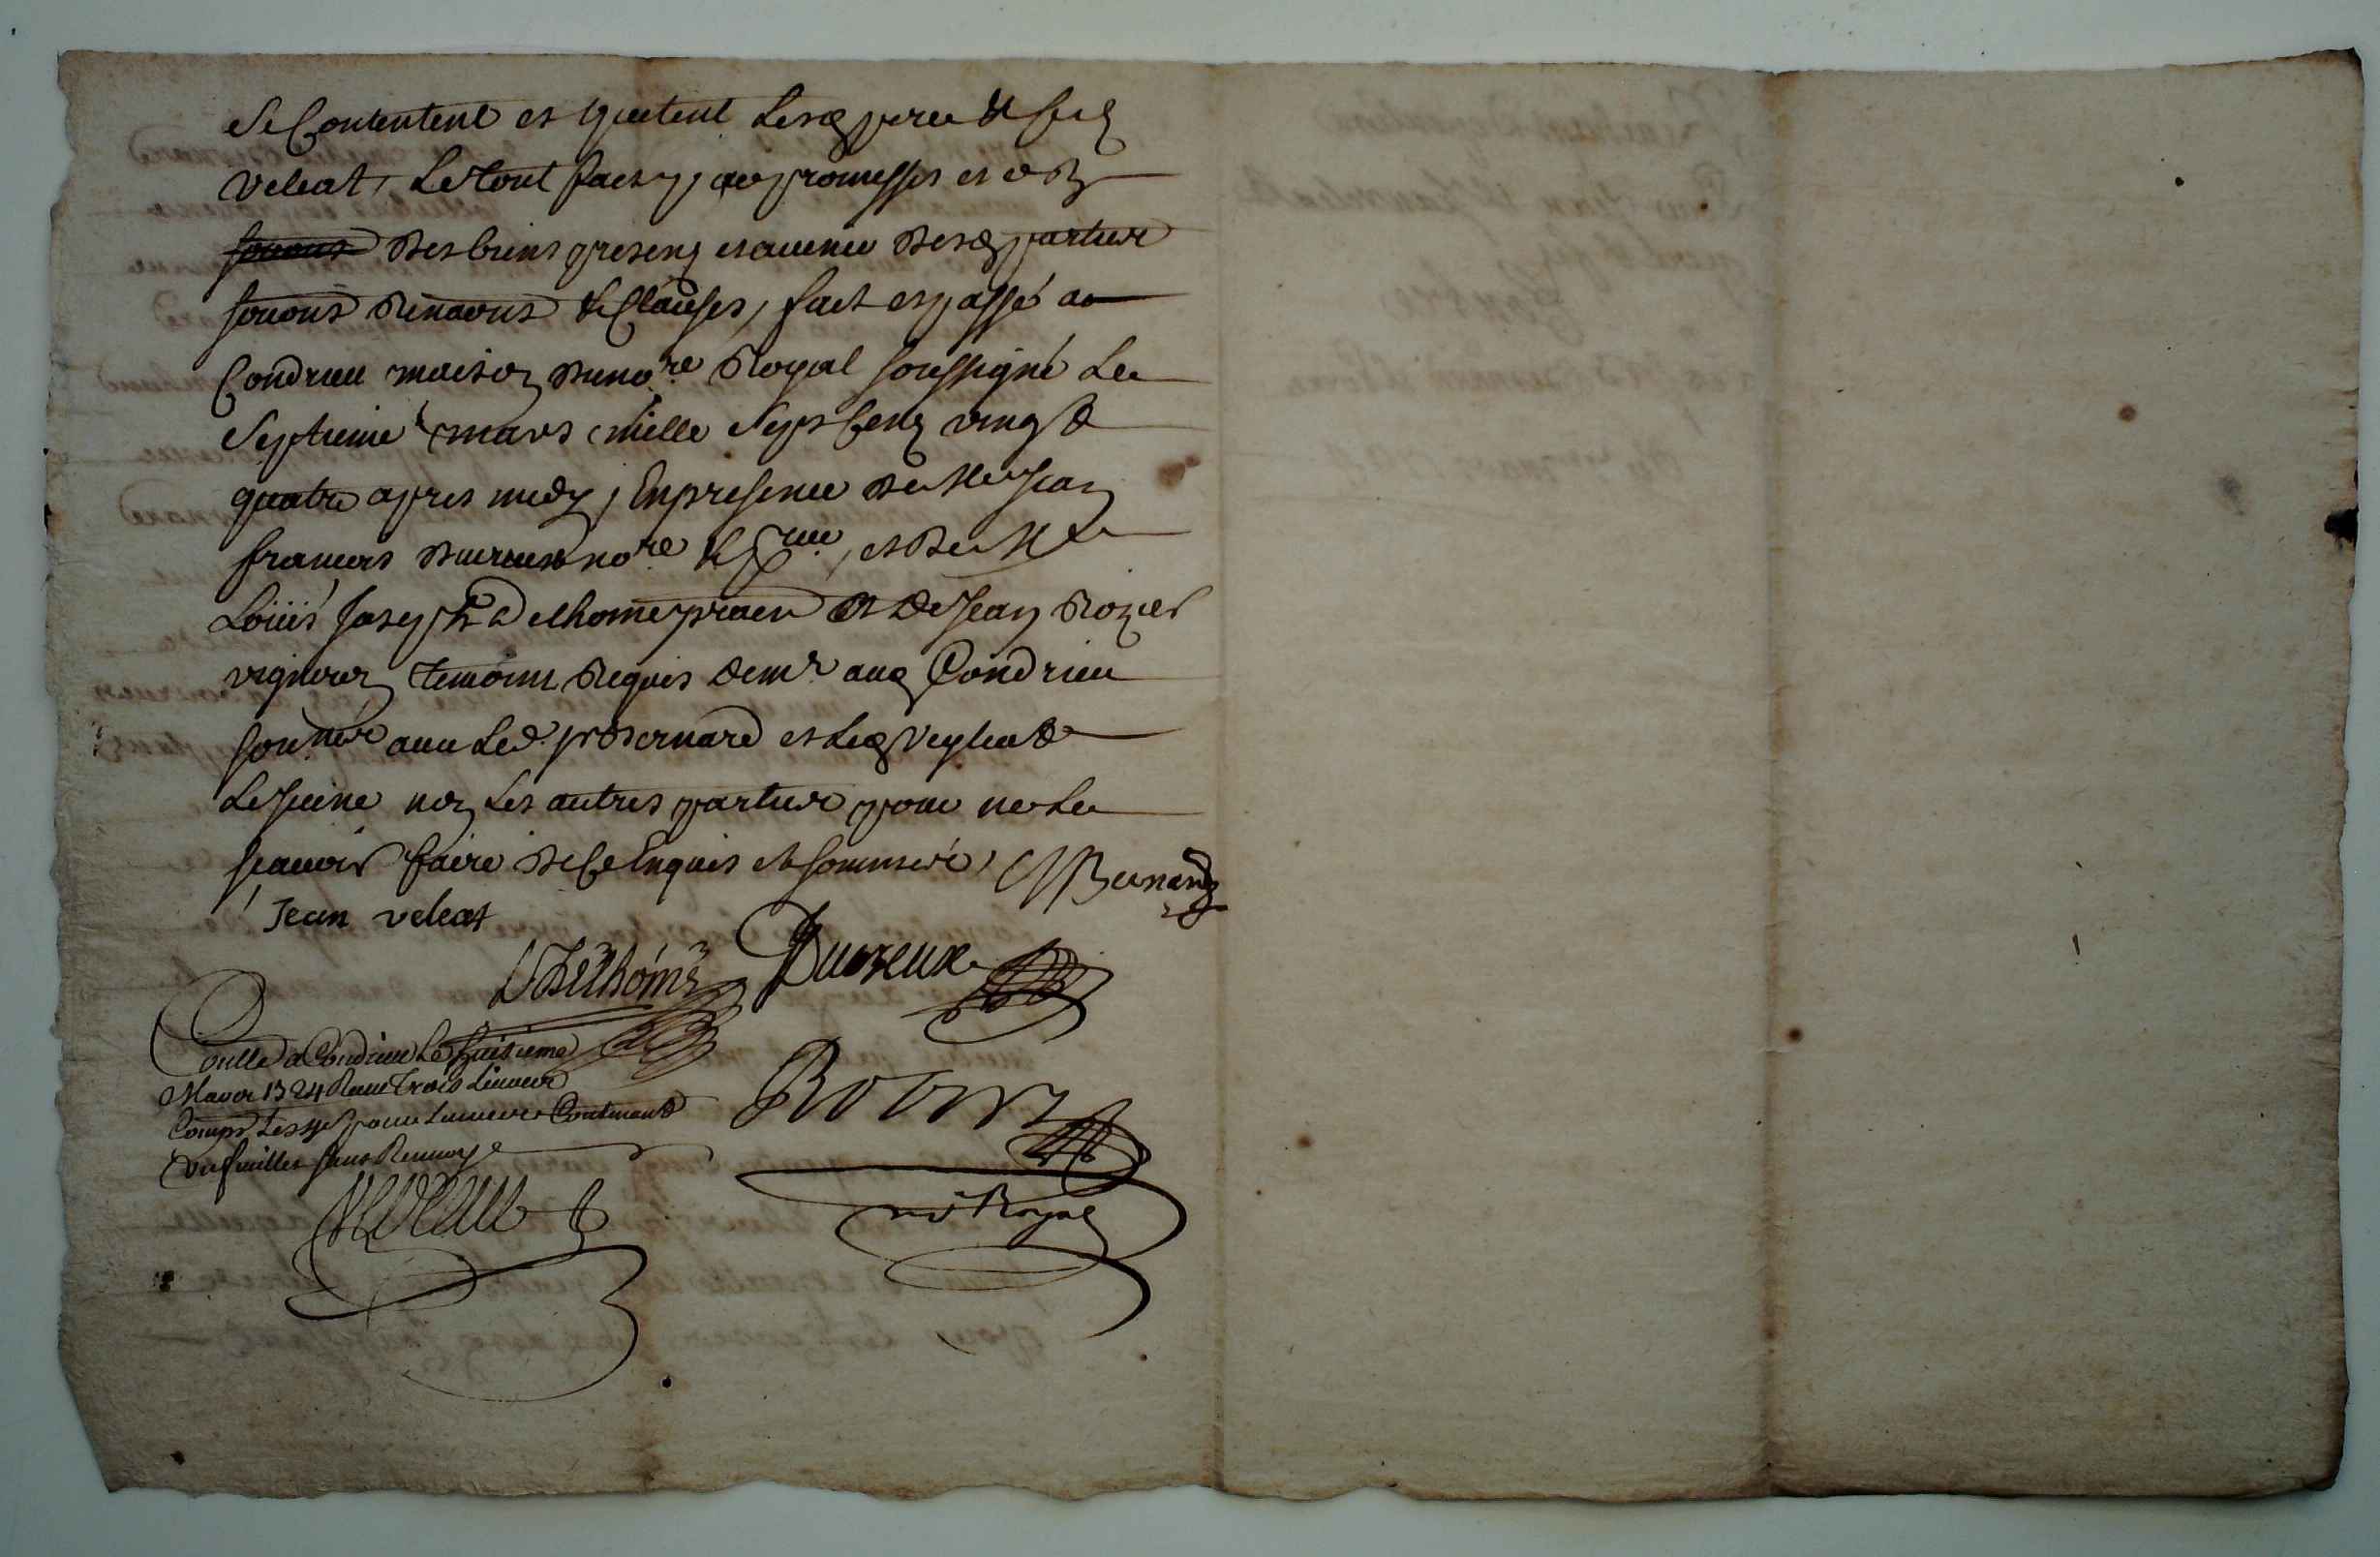 se Contentent et quitent lesd pere & fils
veleat, Le tout fait par promesses et ob
Des biens presens et avenir desd parties
soubs Renons & Clauses, fait et passé au
Condrieu maison du no.re Royal soussigné Le
septieme mars mille sept cens vingt
quatre apres midy, En presence de Me Jean
francois Duvreux no.re & , et de Me
Loüis Joseph Delhome praen et de Jean Rozier
vigneron temoins Requis dem.t aud Condrieu
sousnéz avec Led. sr Bernard et Led Veyleat
Le Jeune non Les autres parties pour ne Le
scavoir faire de Ce Enquis et sommées
MBernard
Jean veleat
Delhome Duvreux
Conllé a Condrieu Le huitieme
Mars 1724 Receu Trois Livres
Compr Les pour Contenant
un feuillet sans Renvoy
no Royal